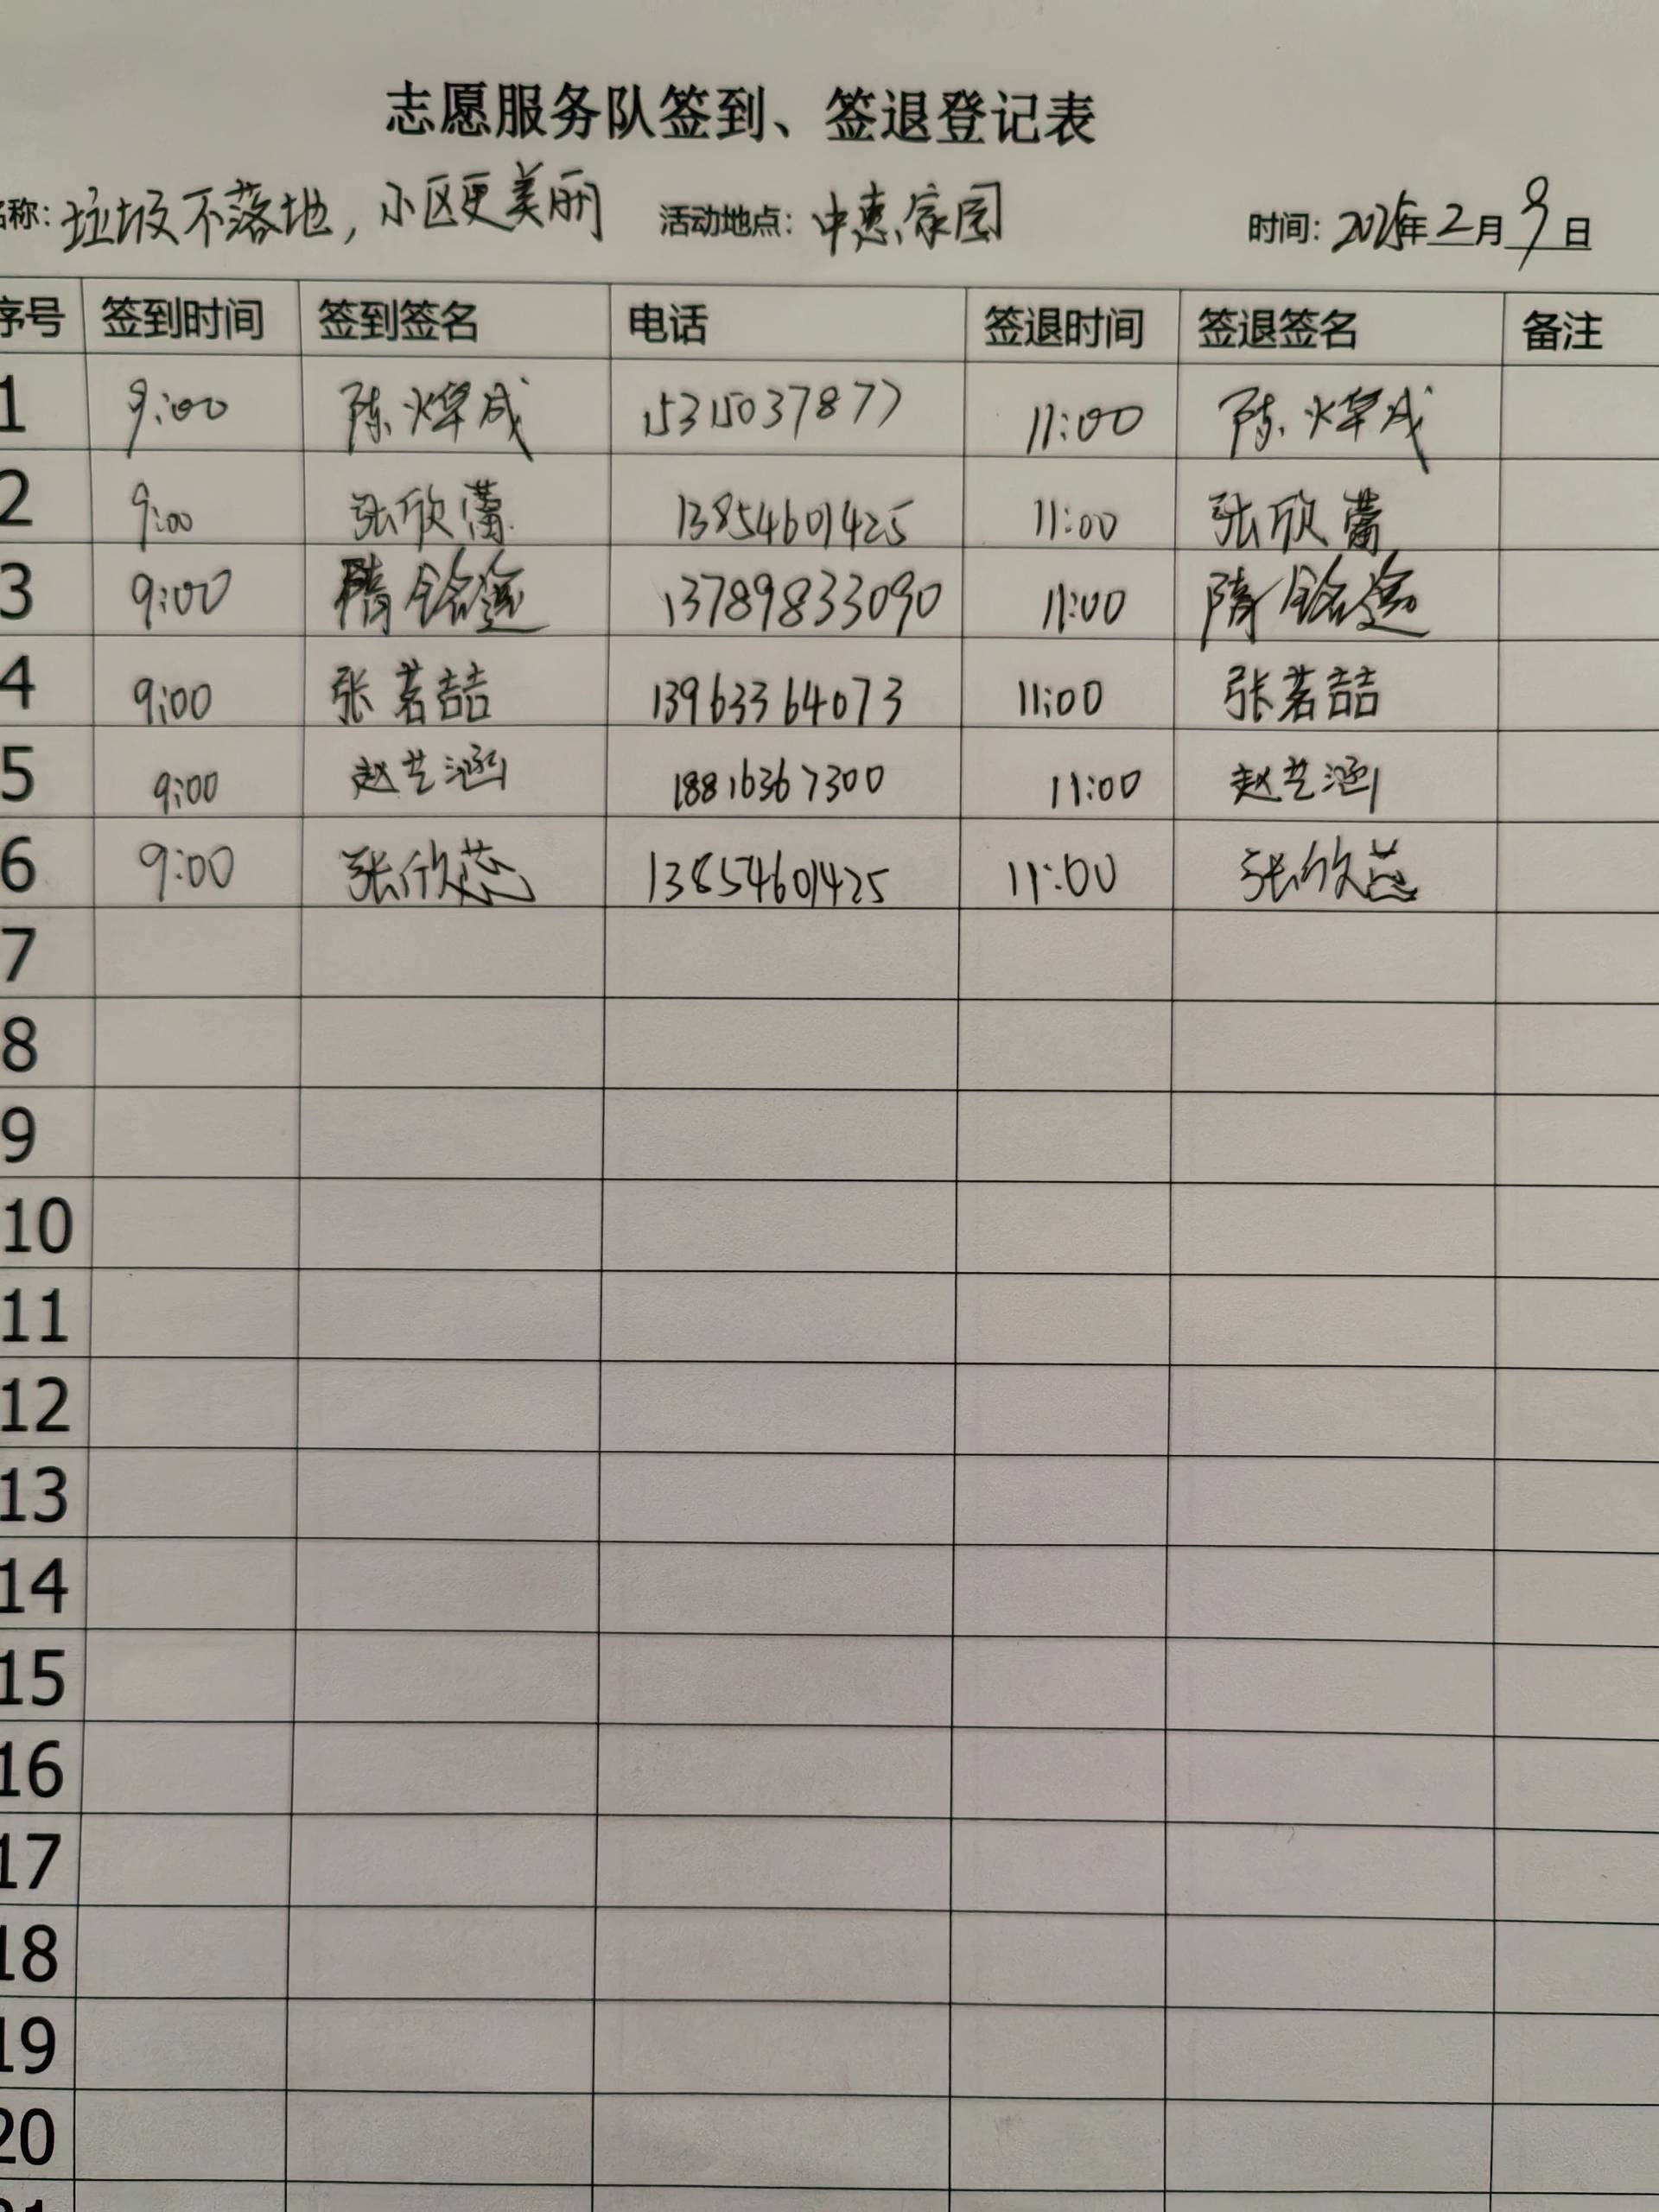 志愿服务队签到、签退登记表
名称: 垃圾不落地,小区更美丽 活动地点: 中惠家园 时间: 2025年2月9日
序号 签到时间 签到签名 电话 签退时间 签退签名 备注
1 9:00 陈焯成 1531503787 11:00 陈焯成
2 9:00 张欣蕾 13854601425 11:00 张欣蕾
3 9:00 隋铭 13789833090 11:00 隋铭
4 9:00 张茗喆 13963364073 11:00 张茗喆
5 9:00 赵艺涵 18816367300 11:00 赵艺涵
6 9:00 张欣蕊 13854601425 11:00 张欣蕊
7
8
9
10
11
12
13
14
15
16
17
18
19
20
21